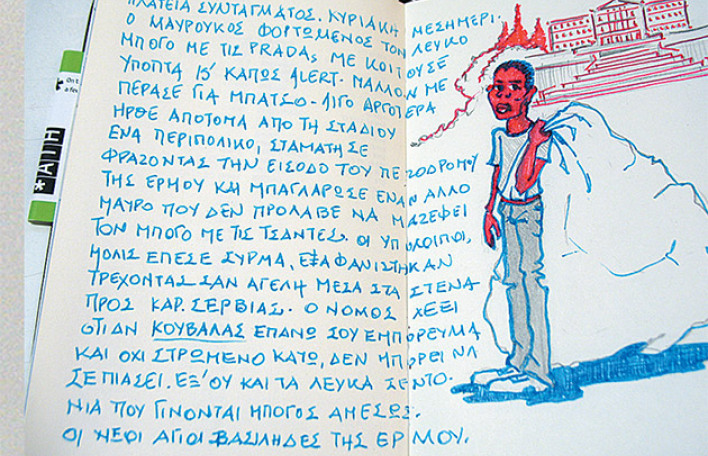 ΠΛΑΤΕΙΑ ΣΥΝΤΑΓΜΑΤΟΣ. ΚΥΡΙΑΚΗ ΜΕΣΗΜΕΡΙ.
Ο ΜΑΥΡΟΥΚΟΣ ΦΟΡΤΩΜΕΝΟΣ ΤΟΝ ΛΕΥΚΟ
ΜΠΟΓΟ ΜΕ ΤΙΣ PRADAς ΜΕ ΚΟΙΤΟΥΣΕ
ΥΠΟΠΤΑ ΚΙ' ΚΑΠΩΣ ALERT. ΜΑΛΛΟΝ ΜΕ
ΠΕΡΑΣΕ ΓΙΑ ΜΠΑΤΣΟ - ΛΙΓΟ ΑΡΓΟΤΕΡΑ
ΗΡΘΕ ΑΠΟΤΟΜΑ ΑΠΟ ΤΗ ΣΤΑΔΙΟΥ
ΕΝΑ ΠΕΡΙΠΟΛΙΚΟ, ΣΤΑΜΑΤΗΣΕ
ΦΡΑΖΟΝΤΑΣ ΤΗΝ ΕΙΣΟΔΟ ΤΟΥ ΠΕΖΟΔΡΟΜΟΥ
ΤΗΣ ΕΡΜΟΥ ΚΑΙ ΜΠΑΓΛΑΡΩΣΕ ΕΝΑΝ ΑΛΛΟ
ΜΑΥΡΟ ΠΟΥ ΔΕΝ ΠΡΟΛΑΒΕ ΝΑ ΜΑΖΕΨΕΙ
ΤΟΝ ΜΠΟΓΟ ΜΕ ΤΙΣ ΤΣΑΝΤΕΣ. ΟΙ ΥΠΟΛΟΙΠΟΙ,
ΜΟΛΙΣ ΕΠΕΣΕ ΣΥΡΜΑ, ΕΞΑΦΑΝΙΣΤΗΚΑΝ
ΤΡΕΧΟΝΤΑΣ ΣΑΝ ΑΓΕΛΗ ΜΕΣΑ ΣΤΑ ΣΤΕΝΑ
ΠΡΟΣ ΚΑΡ. ΣΕΡΒΙΑΣ. Ο ΝΟΜΟΣ ΛΕΕΙ
ΟΤΙ ΑΝ ΚΟΥΒΑΛΑΣ ΕΠΑΝΩ ΣΟΥ ΕΜΠΟΡΕΥΜΑ
ΚΑΙ ΟΧΙ ΣΤΡΩΜΕΝΟ ΚΑΤΩ, ΔΕΝ ΜΠΟΡΕΙ ΝΑ
ΣΕ ΠΙΑΣΕΙ. ΕΞ' ΟΥ ΚΑΙ ΤΑ ΛΕΥΚΑ ΣΕΝΤΟ-
ΝΙΑ ΠΟΥ ΓΙΝΟΝΤΑΙ ΜΠΟΓΟΣ ΑΜΕΣΩΣ.
ΟΙ ΝΕΟΙ ΑΓΙΟΙ ΒΑΣΙΛΗΔΕΣ ΤΗΣ ΕΡΜΟΥ.